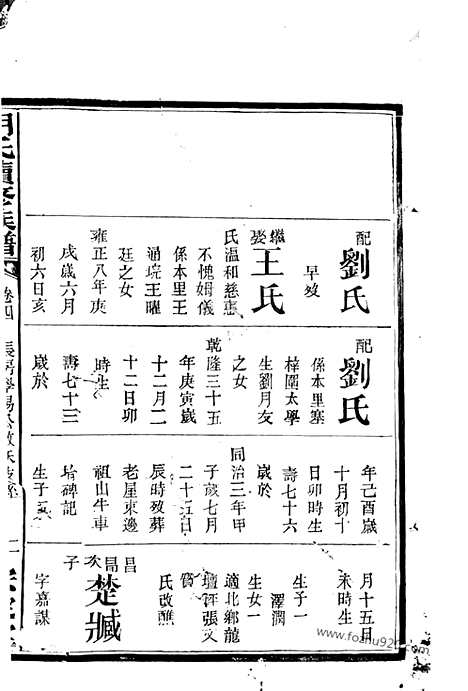 配
劉氏
早歿
繼娶
王氏
氏溫和慈惠
不愧姆儀
係本里王
涌垸王曜
廷之女
雍正八年庚
戌歲六月
初六日亥
配
劉氏
係本里塞
梓圍太學
生劉月友
之女
乾隆三十五
年庚寅歲
十二月二
十二日卯
時生
壽七十三
歲於
年己酉歲
十月初十
日卯時生
壽七十六
歲於
同治三年甲
子歲七月
二十五日
辰時歿葬
老屋東邊
祖山牛車
碑記
生子
月十五日
未時生
生子一
澤潤
生女一
適北鄉龍
壇評張又
賓
氏改醮
昌次子
楚臧
字嘉謀
氏續修族譜
卷四
長房學易公
www.fozhu920.com